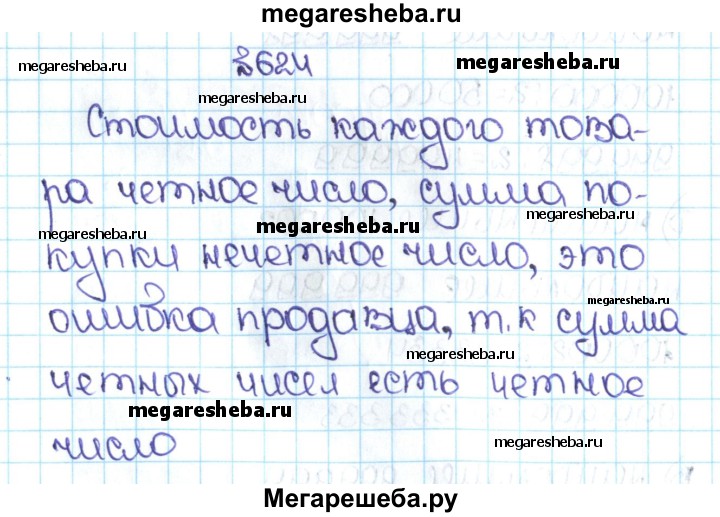 megaresheba.ru
№624
megaresheba.ru
megaresheba.ru
megaresheba.ru
Стоимость каждого това-
ра четное число, сумма по-
megaresheba.ru
megaresheba.ru
megaresheba.ru
купки нечетное число, это
megaresheba.ru
ошибка продавца, т.к сумма
megaresheba.ru
четных чисел есть четное
megaresheba.ru
число
megaresheba.ru
Мегарешеба.ру